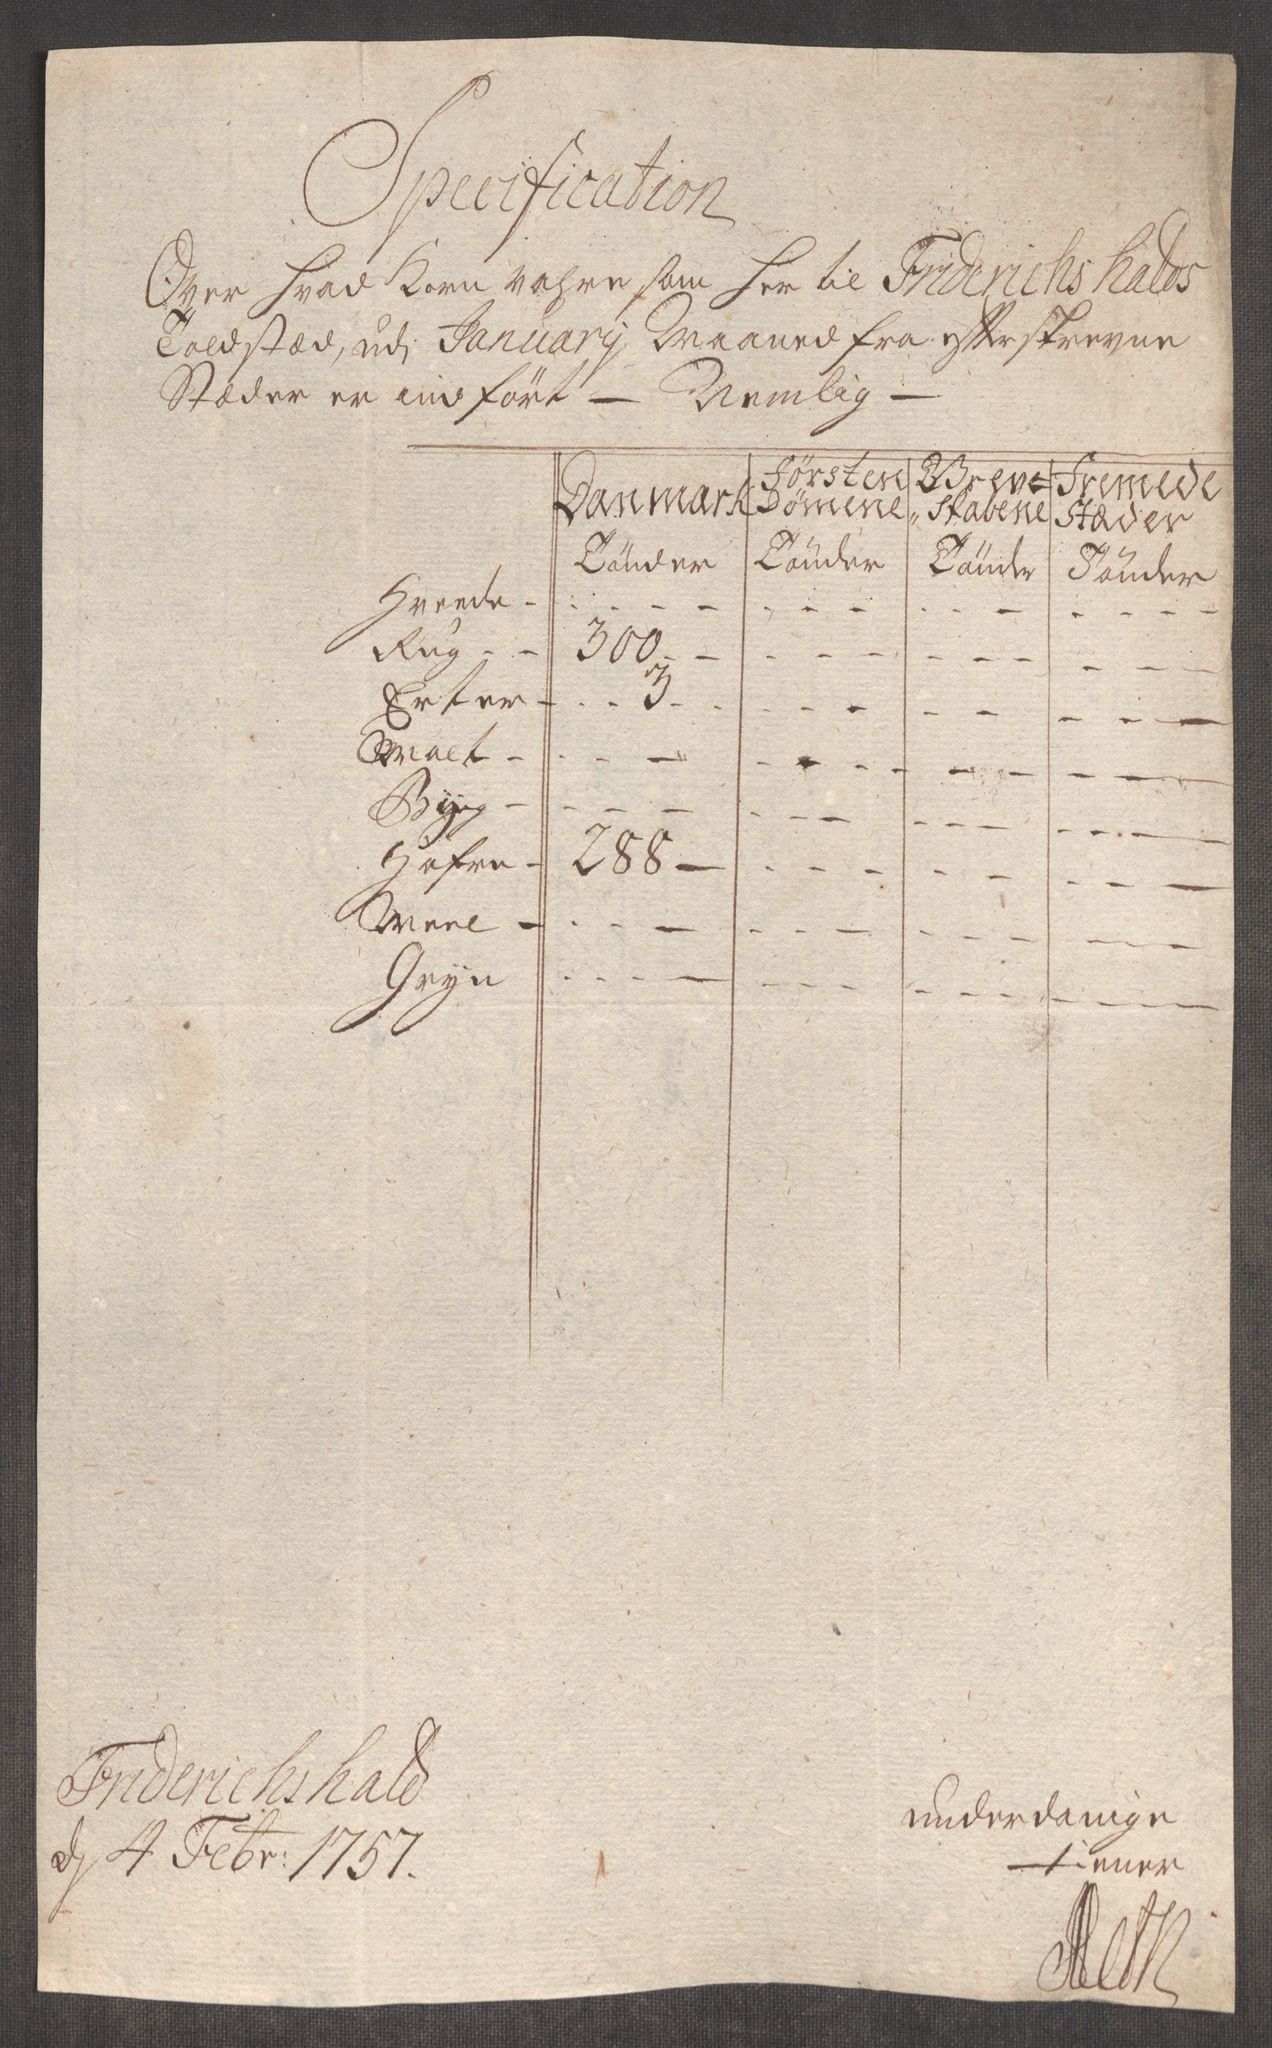 Specification
Over hvad Korn vahre som her til Friderichshalds
Toldstæd, udj January Maaned fra efterskrevne
Stæder er indført — Nemlig —
Danmark Førstendømene Grevskabene Fremede Stæder
Tönder Tönder Tönder Tönder
Hveede - - - - -
Rug - - 300 - -
Erter - - - 3 - -
Malt - - - -
Byg - - - -
Hafre - 288 —
Meel - - - -
Gryn - - - -
Friderichshald
d 4 Febr: 1757.
underdanige
tiener